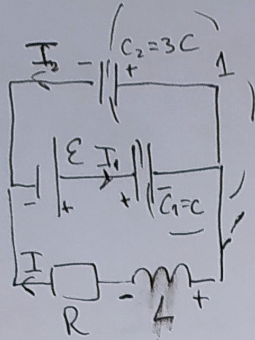 I₂ - C₂=3C
+ 1
ε I₁
- + + C₁=C
I
- +
R L